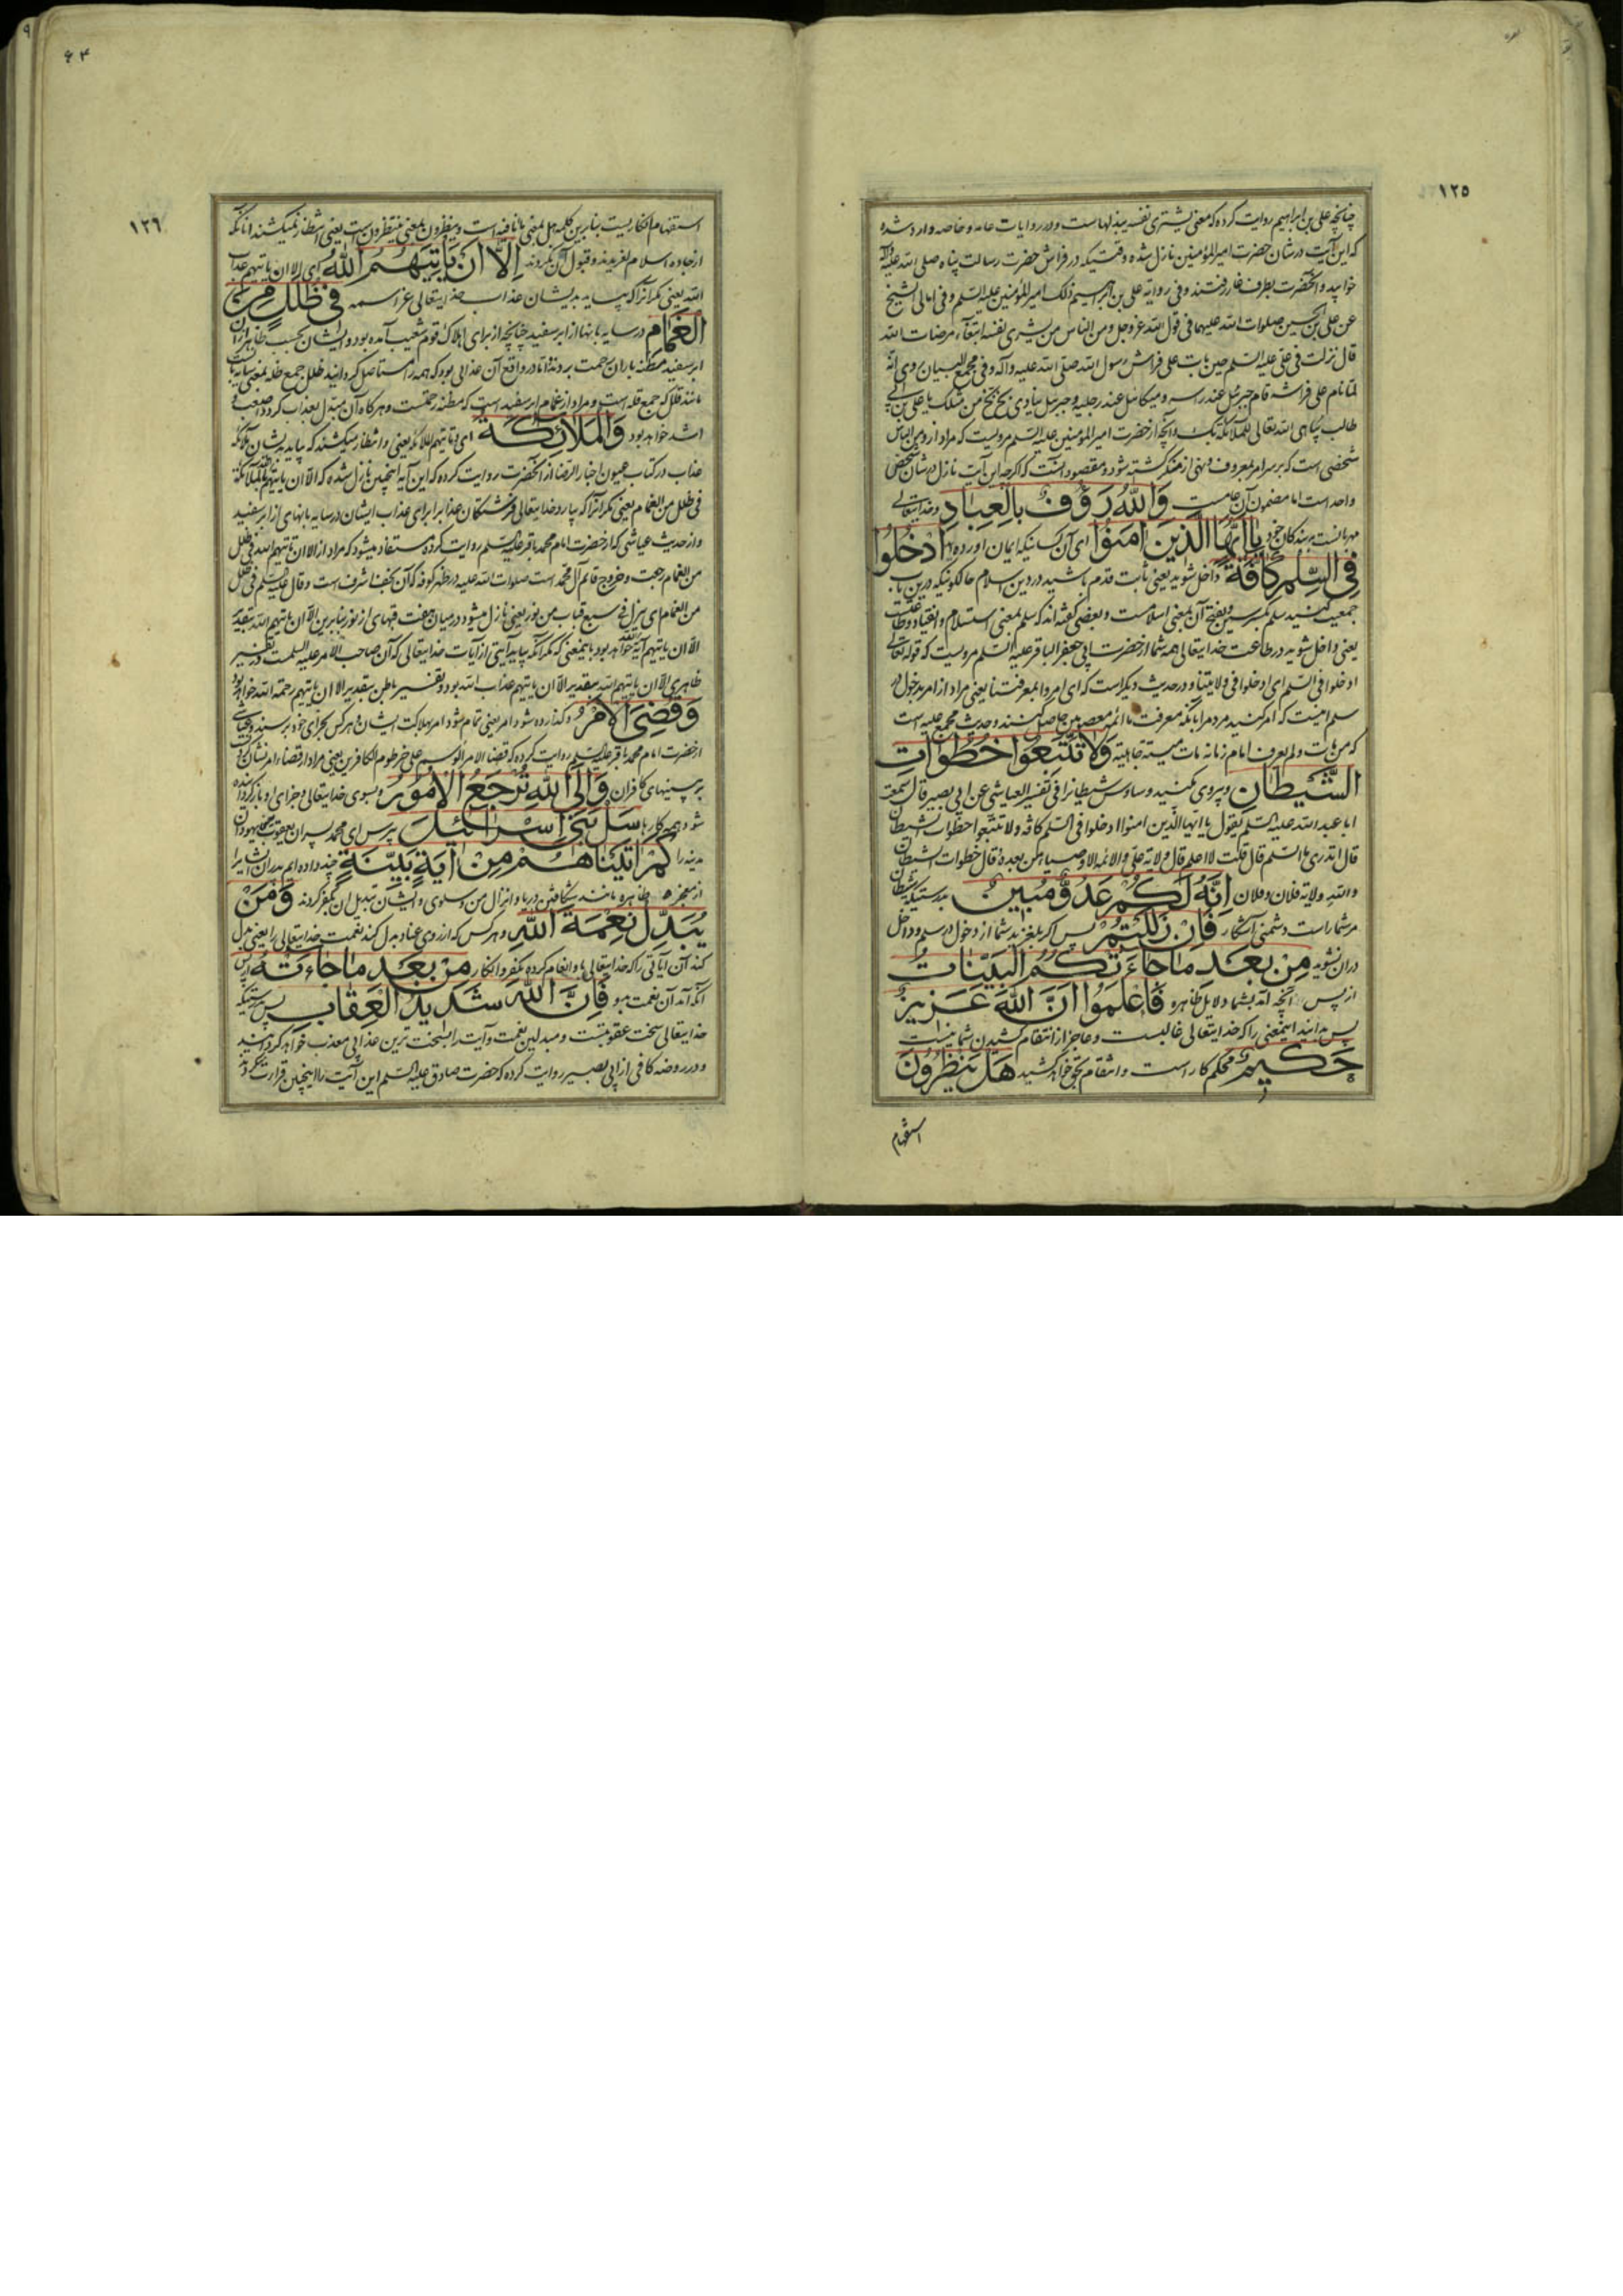 ١٢٥
چنانچه علی بن ابراهیم روایت کرده که معنی یشتری نفسه یبذلهاست و در روایات عامه و خاصه وارد شده
که این آیت در شان حضرت امیرالمؤمنین نازل شده وقتیکه در فراش حضرت رسالت پناه صلی الله علیه وآله
خوابید و آنحضرت بطرف غار رفتند و فی روایه علی بن ابراهیم ذلک امیرالمؤمنین علیه السلم و فی امالی الشیخ
عن علی بن الحسین صلوات الله علیهما فی قول الله عزوجل ومن الناس من یشری نفسه ابتغاء مرضات الله
قال نزلت فی علی علیه السلم حین بات علی فراش رسول الله صلی الله علیه وآله و فی مجمع البیان روی انه
لما نام علی فراشه قام جبرئیل عند رأسه و میکائیل عند رجلیه و جبرئیل ینادی بخ بخ من مثلک یا علی بن ابی
طالب یباهی الله تعالی للملائکة بک و آنچه از حضرت امیرالمؤمنین علیه السلم مرویست که مراد از ومن الناس
شخصی است که بر سر امر بمعروف و نهی از منکر کشته شود و مقصود آنست که اگرچه این آیت نازل در شان شخص
واحد است اما مضمون آن عامست وَاللَّهُ رَؤُفٌ بِالْعِبَادِ وخدایتعالی
مهربانست به بندکان خود یَا اَیُّهَا الَّذینَ اٰمَنُوا ای آن کسانیکه ایمان اورده اید اُدْخُلُوا
فِی السِّلْمِ کَافَّةً داخل شوید یعنی ثابت قدم باشید در دین اسلام حالکونیکه درین باب
جمعیت کنید سلم بکسر سین و بفتح آن بمعنی اسلامست و بعضی گفته اند که سلم بمعنی استسلام و انقیاد و طاعتست
یعنی داخل شوید در طاعت خدایتعالی همه شما از حضرت ابی جعفر الباقر علیه السلم مرویست که قوله تعالی
ادخلوا فی السلم ای ادخلوا فی ولایتنا و در حدیث دیکر است که ای امروا بمعرفتنا یعنی مراد از امر بدخول در
سلم اینست که امر کنید مردم را بانکه معرفت ما ائمه معصومین حاصل کنند و حدیث مجمع علیه است
که من مات ولم یعرف امام زمانه مات میتة جاهلیة وَلَا تَتَّبِعُوا خُطُوَاتِ
الشَّیْطَانِ و پیروی مکنید وساوس شیطانرا فی تفسیر العیاشی عن ابی بصیر قال سمعت
ابا عبد الله علیه السلم یقول یا ایها الذین امنوا ادخلوا فی السلم کافة ولا تتبعوا خطوات الشیطان
قال اتدری ما السلم قال قلت لا اعلم قال ولایة علی والائمه الاوصیاء من بعده قال خطوات الشیطان
والله ولایة فلان وفلان اِنَّهُ لَکُمْ عَدُوٌّ مُبینٌ بدرستیکه شیطان
مر شما راست دشمنی آشکار فَاِنْ زَلَلْتُمْ پس اکر بلغزید شما از دخول در سلم و داخل
دران نشوید مِنْ بَعْدِ مَا جَاءَتْکُمُ الْبَیِّنَاتُ
از پس آنچه آمد بشما دلایل ظاهره فَاعْلَمُوا اَنَّ اللهَ عَزیزٌ
پس بدانید اینمعنی را که خدایتعالی غالبست و عاجز از انتقام کشیدن شما نیست
حَکیمٌ محکم کار است و انتقام بحق خواهد کشید هَلْ یَنْظُرُونَ
استفهام
۶۳
١٢٦
استفهام انکاریست بنابرین کلمه هل بمعنی ما نافیه است و ینظرون بمعنی ینتظرون است یعنی انتظار نمیکشند انانکه
از جاده اسلام لغزیدند و قبول آن نکردند اِلَّا اَنْ یَاْتِیَهُمُ اللّٰهُ ای الا ان یاتیهم عذاب
الله یعنی مکر انرا که بیاید بدیشان عذاب خدایتعالی عز اسمه فی ظُلَلٍ مِنَ
الْغَمَامِ در سایه بانها از ابر سفید چنانچه از برای اهلاک قوم شعیب آمده بود و ایشان بحسب ظاهر از ان
ابر سفید مظنه باران رحمت بردند اما در واقع آن عذابی بود که همه را مستاصل کردانید ظلل جمع ظله بمعنی سایه بانست
مانند قلل که جمع قله است و مراد از غمام ابر سفید است که مظنه رحمتست و هرکاه آن مبدل بعذاب کردد اصعب و
اشد خواهد بود وَالْمَلَائِکَةُ ای او تاتیهم الملائکة یعنی و انتظار میکشند که بیاید بدیشان ملائکه
عذاب در کتاب عیون اخبار الرضا از آنحضرت روایت کرده که این آیه اینچنین نازل شده که الا ان یاتیهم الله بالملائکة
فی ظلل من الغمام یعنی مکر انرا که بیارد خدایتعالی فرشتکان عذاب را برای عذاب ایشان در سایه بانهای از ابر سفید
و از حدیث عیاشی که از حضرت امام محمد باقر علیه السلم روایت کرده مستفاد میشود که مراد از الا ان یاتیهم الله فی ظلل
من الغمام رجعت و خروج قائم آل محمد است صلوات الله علیه در ظهر کوفه که آن نجف اشرف است و قال علیه السلم فی ظلل
من الغمام ای ینزل فی سبع قباب من نور یعنی نازل میشود در میان هفت قبهای از نور بنابرین الا ان یاتیهم الله بتقدیر
الا ان یاتیهم آیة الله خواهد بود باینمعنی که مکر آنکه بیاید آیتی از آیات خدایتعالی که آن صاحب الامر علیه السلمست و در تفسیر
ظاهری الا ان یاتیهم الله بتقدیر الا ان یاتیهم عذاب الله بود و تفسیر باطن بتقدیر الا ان یاتیهم رحمة الله خواهد بود
وَقُضِیَ الْاَمْرُ و کذارده شود امر یعنی تمام شود امر بهلاکت ایشان و هر کس بجزای خود برسند و عیاشی
از حضرت امام محمد باقر علیه السلم روایت کرده که قضاء الامر الوسم علی خرطوم الکافرین یعنی مراد از قضاء امر نشان کردنست
بر بینیهای کافران وَاِلَی اللّٰهِ تُرْجَعُ الْاُمُورُ و بسوی خدایتعالی و جزای او باز کردانیده
شود همه کارها سَلْ بَنی اِسْرَائیلَ بپرس ای محمد پسران یعقوب یعنی یهودان
مدینه را کَمْ اٰتَیْنَاهُمْ مِنْ اٰیَةٍ بَیِّنَةٍ چند داده ایم پدران ایشانرا
از معجزه ظاهره مانند شکافتن دریا و انزال من و سلوی و ایشان تبدیل ان بکفر کردند وَمَنْ
یُبَدِّلْ نِعْمَةَ اللّٰهِ و هر کس که از روی عناد بدل کند نعمت خدایتعالی را یعنی بدل
کند آن آیاتی را که خدایتعالی باو انعام کرده بکفر و انکار مِنْ بَعْدِ مَا جَاءَتْهُ از پس
آنکه آمد آن نعمت باو فَاِنَّ اللّٰهَ شَدیدُ الْعِقَابِ پس بدرستیکه
خدایتعالی سخت عقوبتست و مبدلین نعمت و آیت را بسخت ترین عذابی معذب خواهد کردانید
و در روضه کافی از ابی بصیر روایت کرده که حضرت صادق علیه السلم این آیت را اینچنین قرائت میکردند